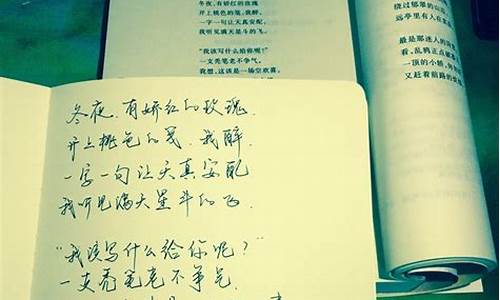 冬夜,有娇红的玫瑰
开上桃色的笺,我醉,
一字一句让天真安配
我听见满天星斗的飞。
"我该写什么给你呢?"
一支秃笔老不争气,
我想,这该是一场空欢喜。
绕过郁翠的山
远亭里有人在
最是那迷人的
看,乱鸦正点
一顶的小轿,
又赶着前路的
冬夜.有娇红的玫瑰.
开上桃色的笺.我醉.
一字一句让天真安配
我听见满天星斗的飞.
"我该写什么给你呢?"
一支秃笔老不争气.